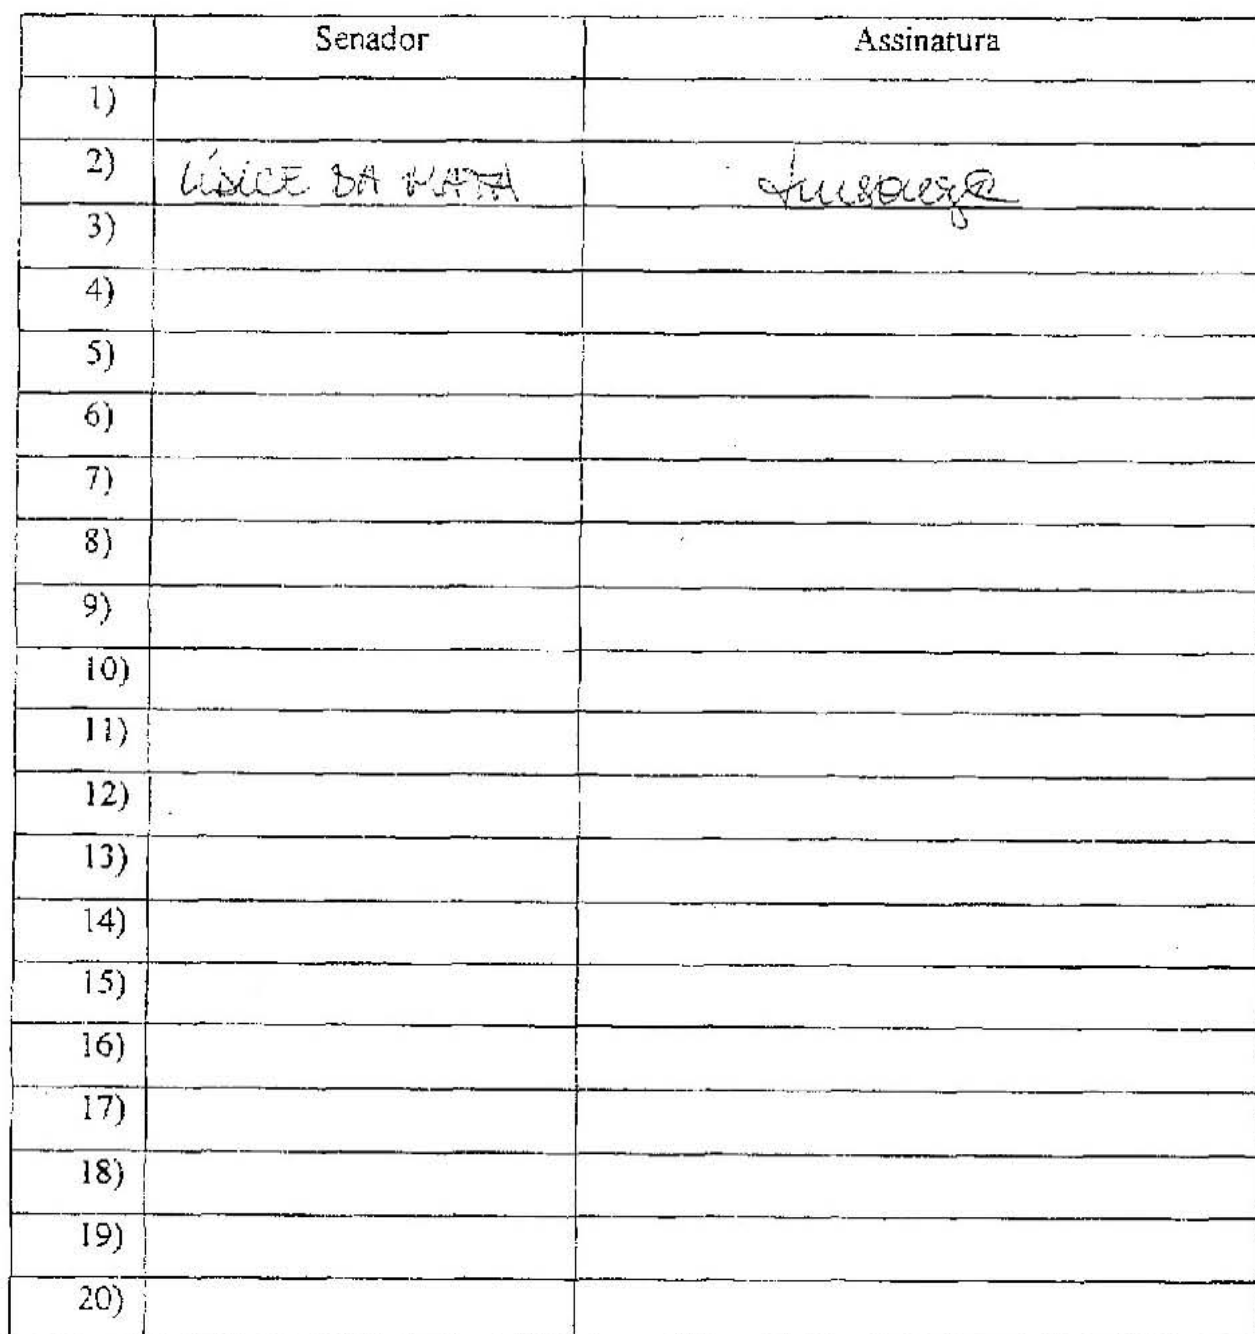 Senador Assinatura
1)
2) LÍDICE DA MATA
3)
4)
5)
6)
7)
8)
9)
10)
11)
12)
13)
14)
15)
16)
17)
18)
19)
20)